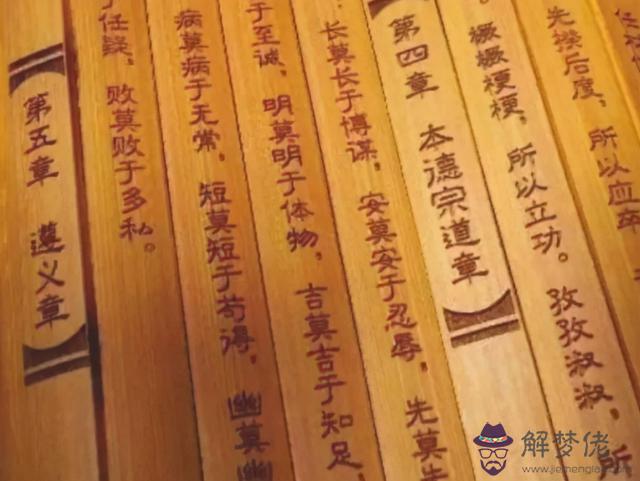 先揆后度，所以应卒
。橛橛梗梗，所以立功。孜孜淑淑，所
第四章 本德宗道章
长莫长于博谋，安莫安于忍辱，先莫先
于至诚，明莫明于体物，吉莫吉于知足，
病莫病于无常，短莫短于苟得，幽莫幽
于任疑，败莫败于多私。
第五章 遵义章
解梦佬